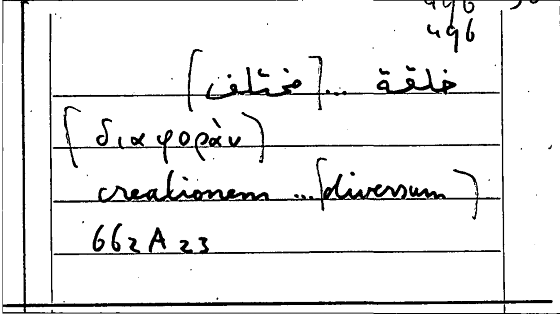 496
496
خلقة ... [مختلف]
[διαφοράν]
creationem ... [diversum]
662 A 23